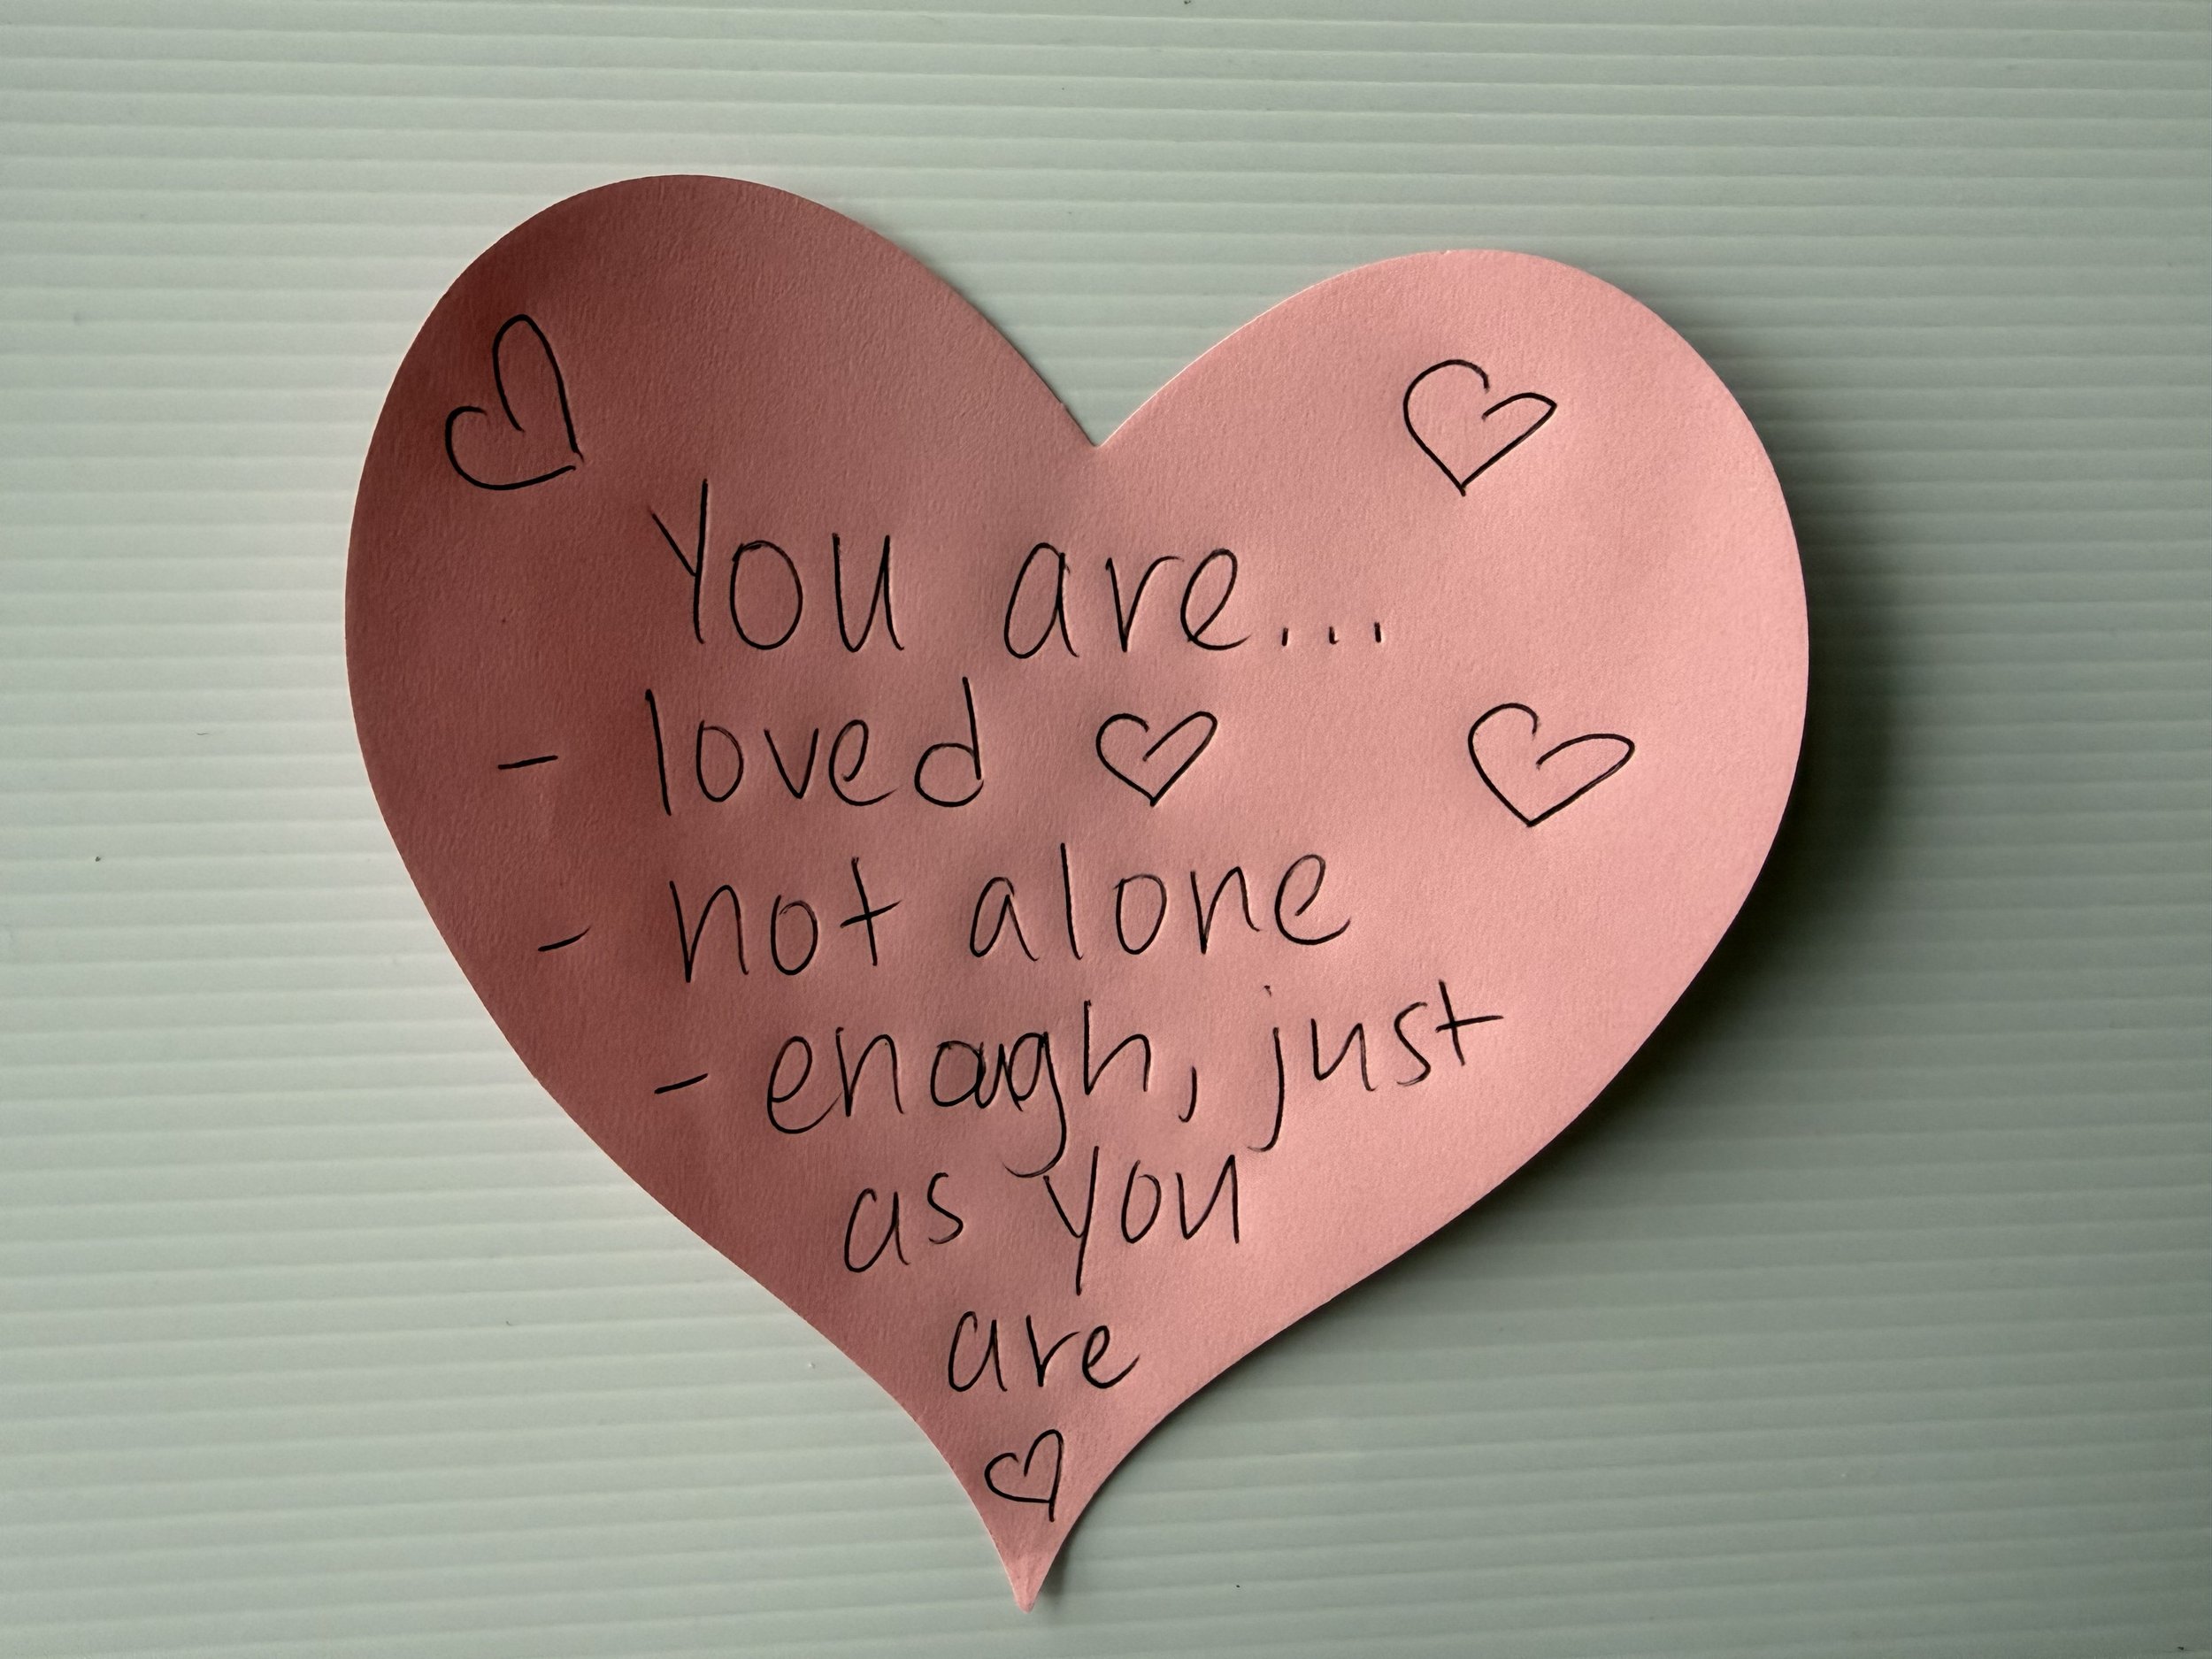 You are...
- loved ♡
- not alone
- enough, just
as you
are
♡